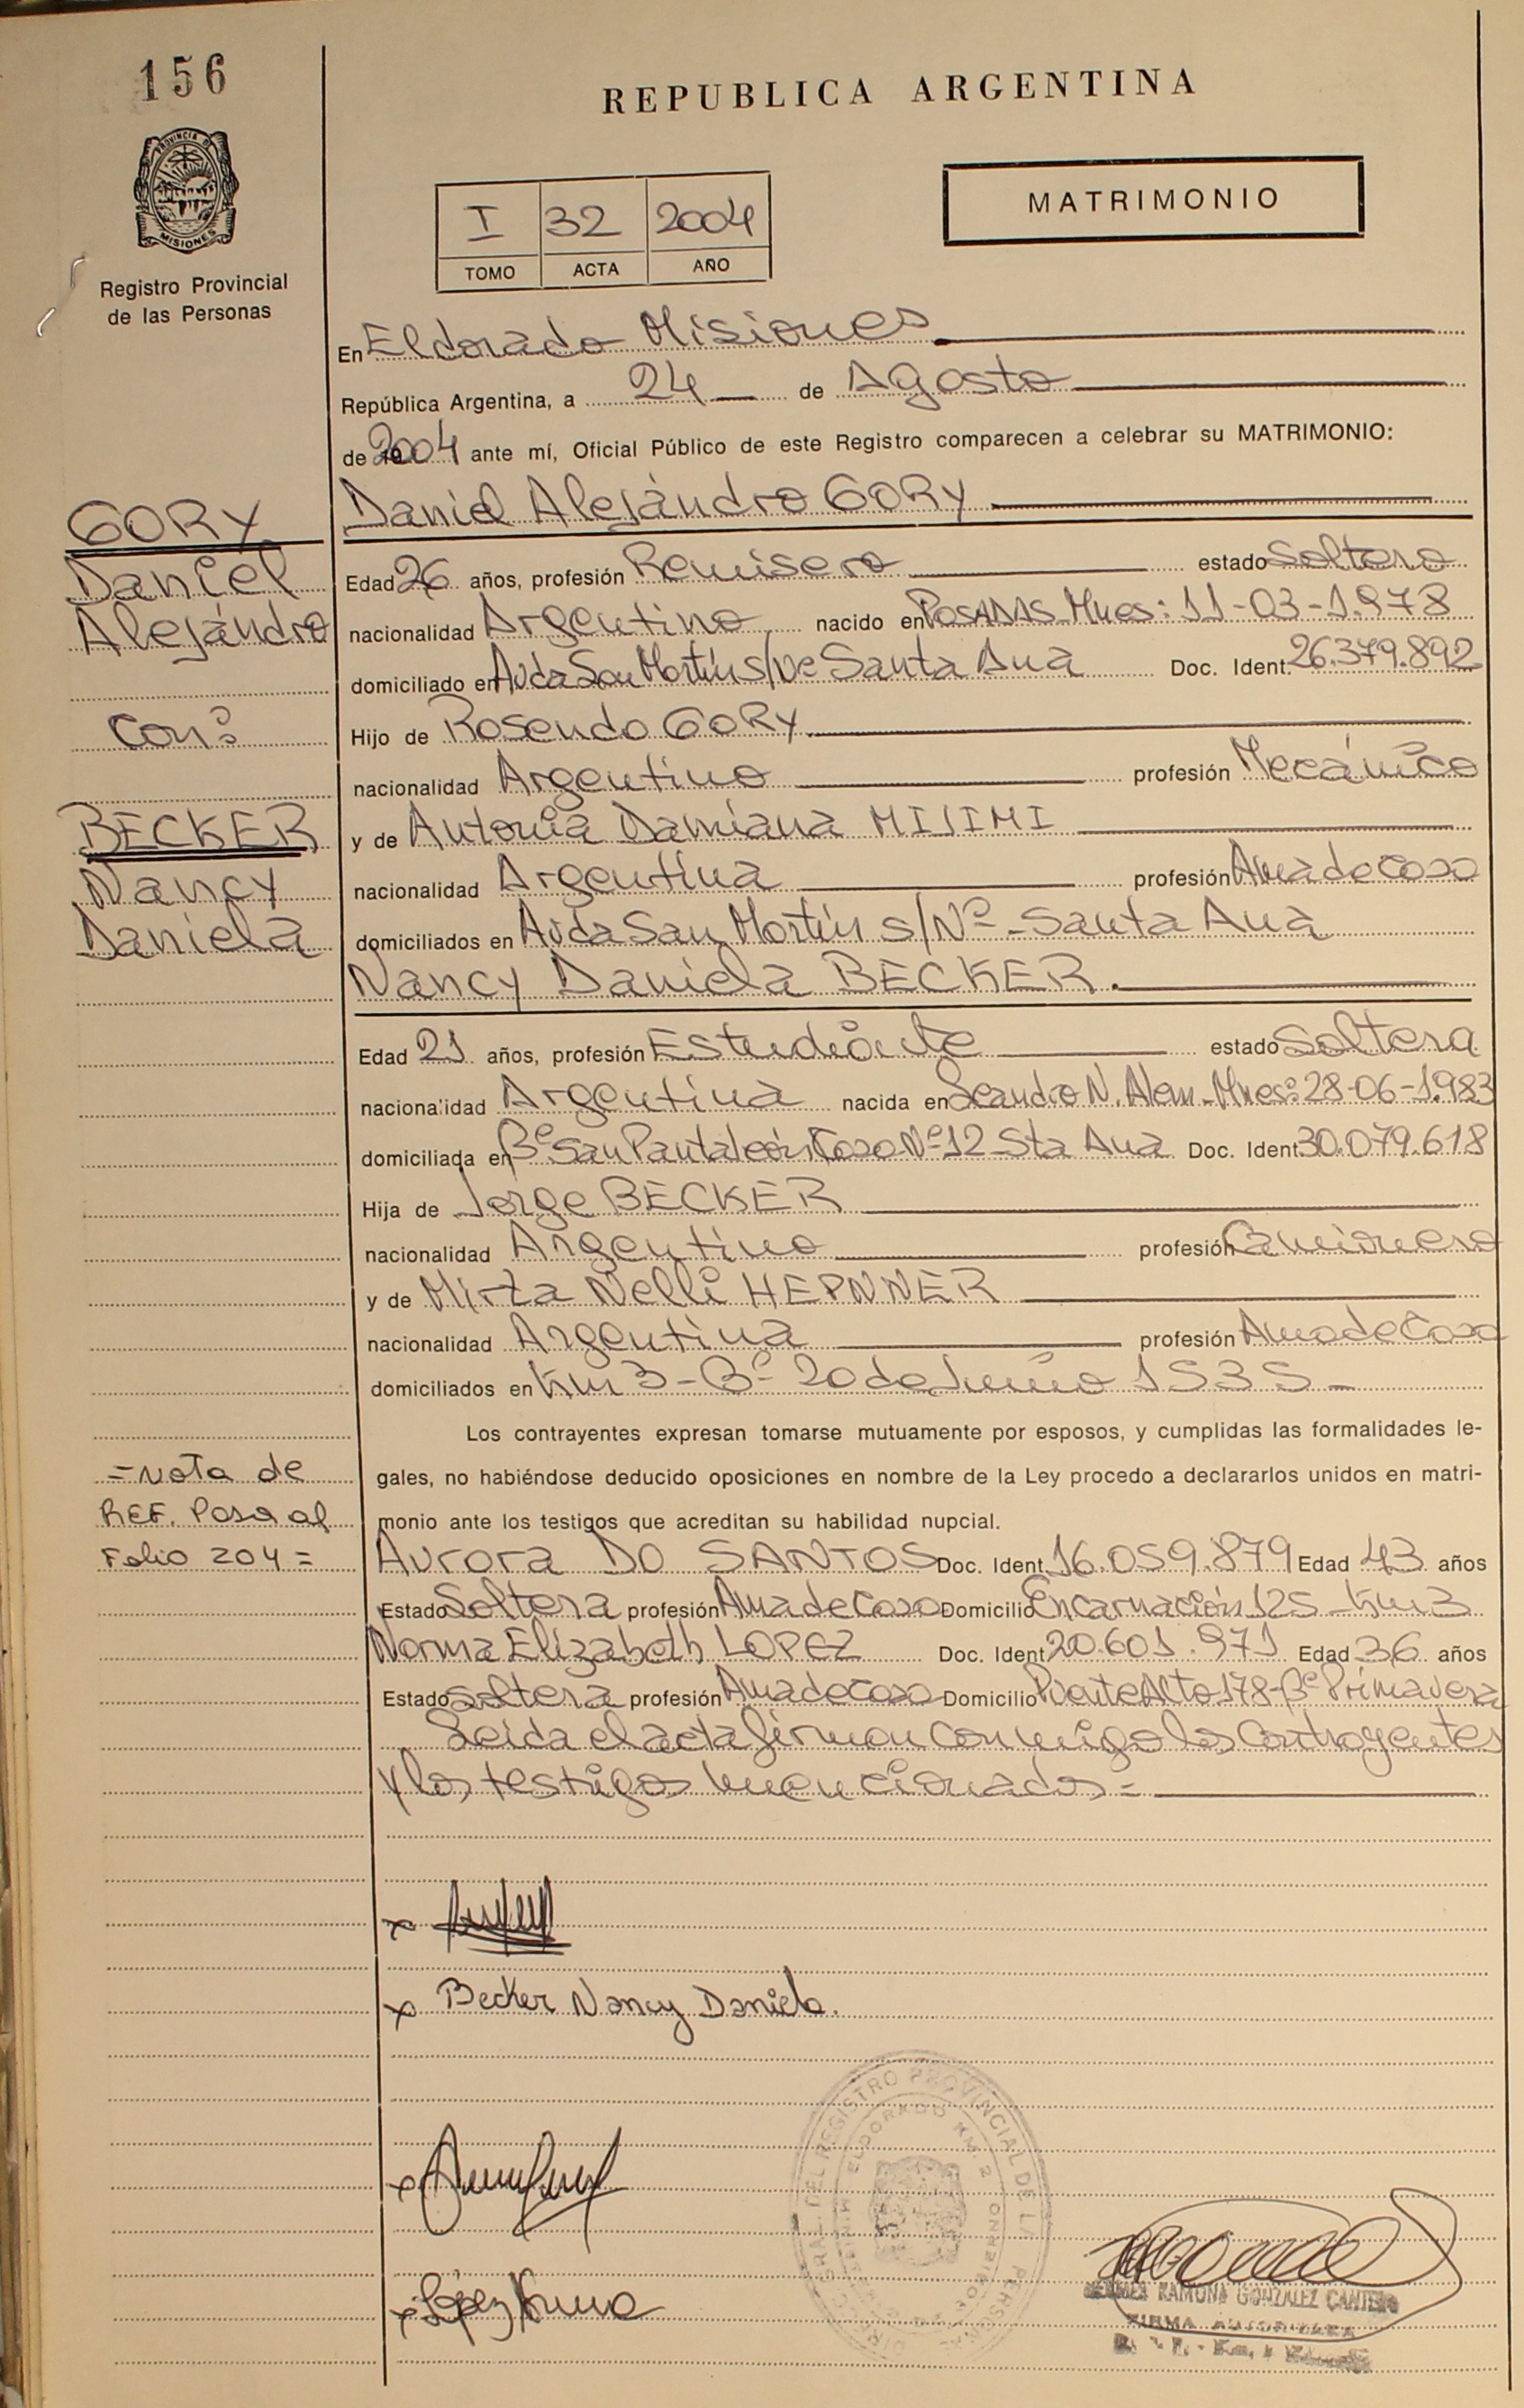 156
REPUBLICA ARGENTINA
PROVINCIA D
MISIONES
Registro Provincial
de las Personas
I 32 2004
TOMO ACTA AÑO
MATRIMONIO
En Eldorado Misiones
República Argentina, a 24 de Agosto
de 2004 ante mí, Oficial Público de este Registro comparecen a celebrar su MATRIMONIO:
GORY
Daniel
Alejándro
con:
BECKER
Nancy
Daniela
Daniel Alejándro GORY
Edad 26 años, profesión Remisero estado Soltero
nacionalidad Argentino nacido en Posadas Mnes: 11-03-1.978
domiciliado en Avda San Martín S/Nº Santa Ana Doc. Ident. 26.379.892
Hijo de Rosendo GORY
nacionalidad Argentino profesión Mecánico
y de Antonia Damiana
nacionalidad Argentina profesión Ama de Casa
domiciliados en Avda San Martín S/Nº - Santa Ana
Nancy Daniela BECKER.
Edad 21 años, profesión Estudiante estado Soltera
nacionalidad Argentina nacida en Leandro N. Alem - Mnes: 28-06-1.983
domiciliada en Bº San Pantaleón Casa Nº 12 Sta Ana Doc. Ident 30.079.618
Hija de Jorge BECKER
nacionalidad Argentino profesión Camionero
y de Mirta Nelli HEPNNER
nacionalidad Argentina profesión Ama de Casa
domiciliados en Km 3 - Bº 20 de Junio 1535 -
Los contrayentes expresan tomarse mutuamente por esposos, y cumplidas las formalidades le-
gales, no habiéndose deducido oposiciones en nombre de la Ley procedo a declararlos unidos en matri-
monio ante los testigos que acreditan su habilidad nupcial.
= Nota de
REF. Pasa al
Folio 204 =
Aurora DO SANTOS Doc. Ident. 16.059.879 Edad 43 años
Estado Soltera profesión Ama de Casa Domicilio Encarnación 125 - Km 3
Norma Elizabeth LOPEZ Doc. Ident 20.601.971 Edad 36 años
Estado Soltera profesión Ama de Casa Domicilio Puente Alto 178 - Bº Primavera
Leida el acta firman conmigo los contrayentes
y los testigos mencionados =
x
x Becker Nancy Daniela.
x
x López Norma
DEL REGISTRO PROVINCIAL DE LA
ELDORADO KM. 2
RAMONA GONZALEZ CANTERO
FIRMA AUTORIZADA